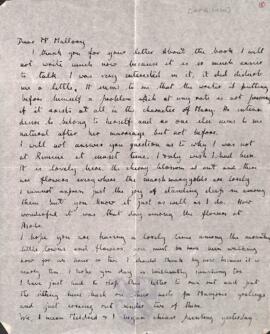 Dear Mr Mallory
I thank you for your letter about the book I will
not write much now because it is so much easier
to talk. I was very interested in it, it did disturb
me a little. It seems to me that the writer is putting
before himself a problem which at any rate is not
if it exists at all in the character of Mary. An intense
desire to belong to herself and no one else seems to me
natural after her marriage but not before.
I will not answer you question as to why I was not
at Rimini at sunset time. I only wish I had been
It is lovely here the cherry blossom is out and there
are flowers everywhere the marsh marigolds are lovely
I cannot express just the joy of standing deep in among
them but you know it just as well as I do. How
wonderful it was that day among the flowers at
Asolo.
I hope you are having a lovely time among the
little towns and flowers you must have been walking
now for an hour or two I should think by now because it is
nearly ten. I hope you day is brilliantly sunshiny too
I have just had to stop this letter to run out and put
the sitting hens back on their nests for Marjorie
and just coming out
We, I mean Mildred & I began chicken yesterday